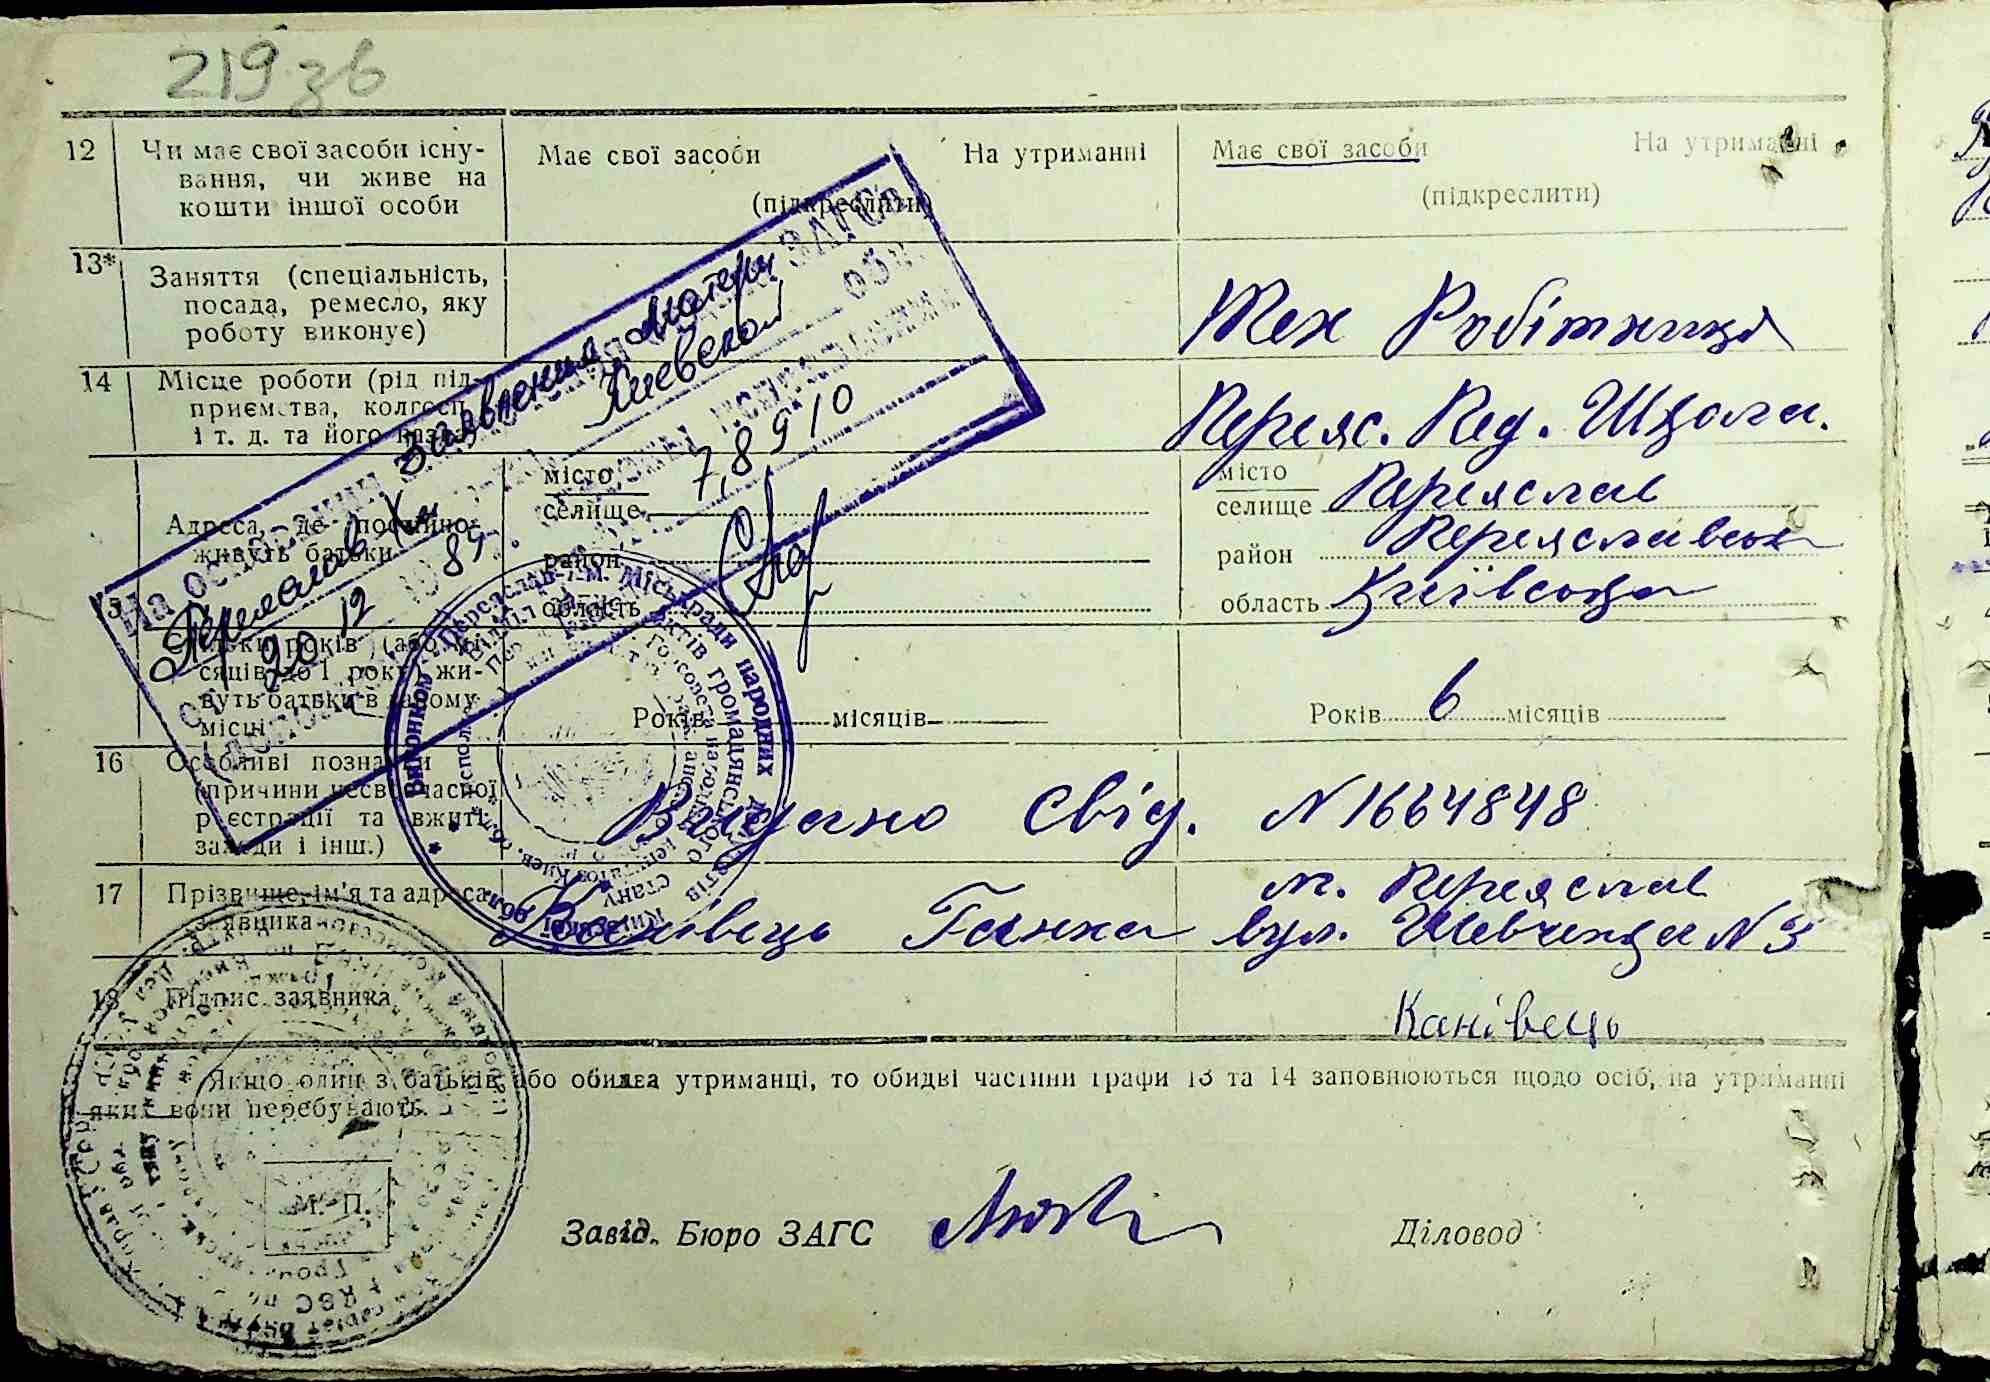 219 зв
12 Чи має свої засоби існу-
вання, чи живе на
кошти іншої особи
Має свої засоби На утриманні
(підкреслити)
Має свої засоби На утриманні
(підкреслити)
13* Заняття (спеціальність,
посада, ремесло, яку
роботу виконує)
Тех Робітниця
14 Місце роботи (рід під-
приємства, колгосп
і т. д. та його назва
Переяс. Пед. Школа.
15 Адреса, де постійно
живуть батьки
місто
селище
район
область
місто
селище Переяслав
район Переяславськ
область Київська
Скільки років (або мі-
сяців до 1 року) жи-
вуть батьки в даному
місці
Років місяців
Років 6 місяців
16 Особливі познаки
(причини несвоєчасної
реєстрації та вжиті
заходи і інш.)
Видано свід. N 1664848
17 Прізвище, ім'я та адреса
заявника
Канівець Ганна
м. Переяслав
вул. Шевченка N 3
18 Підпис заявника
Канівець
Якщо один з батьків або обидва утриманці, то обидві частини графи 13 та 14 заповнюються щодо осіб, на утриманні
яких вони перебувають.
М. П.
Завід. Бюро ЗАГС
Діловод
На основании заявления матери
Переяслав-Хм ЗАГС
Киевской обл.
20 12 1985
7, 8 9 10
Виконком Переяслав-Хм. міськради народних депутатів Київської обл.